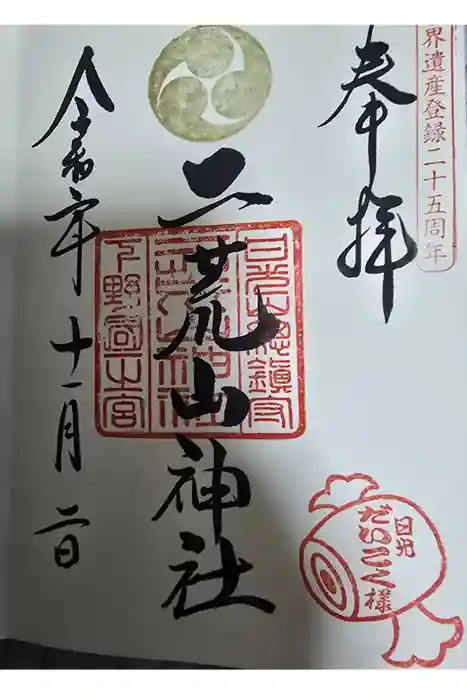 界遺産登録二十五周年
奉拝
日光山總鎮守
二荒山神社
二荒山神社
下野國一之宮
令和六年十一月二日
日光
だいこく様